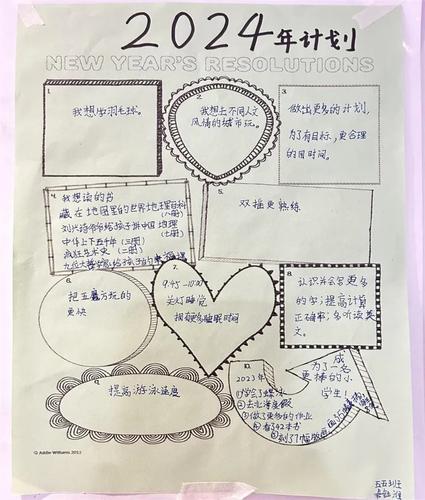 2024年计划
NEW YEAR'S RESOLUTIONS
1.
我想学羽毛球。
2.
我想去不同人文
风情的城市玩。
3.
做出更多的计划,
为了有目标,更合理
的用时间。
4.
我想读的书
藏在地图里的世界地理百科
(八册)
刘兴诗爷爷给孩子讲中国地理
(七册)
中华上下五千年(三册)
疯狂美术史(二册)
给孩子的
5.
双摇更熟练
6.
把五魔方玩的
更快
7.
9:45-10:00
关灯睡觉
有更多睡眠时间
8.
认识并会写更多
的字;提高计算
正确率;多听读英
文。
9.
提高游泳速度
10.
成
为了一名
更棒的小
学生!
2023年
①学会了蝶泳
②去北海度假
③做了更多的作业
④看了92本书
⑤刻了17幅版画
© Adobe Williams 2013
五五班